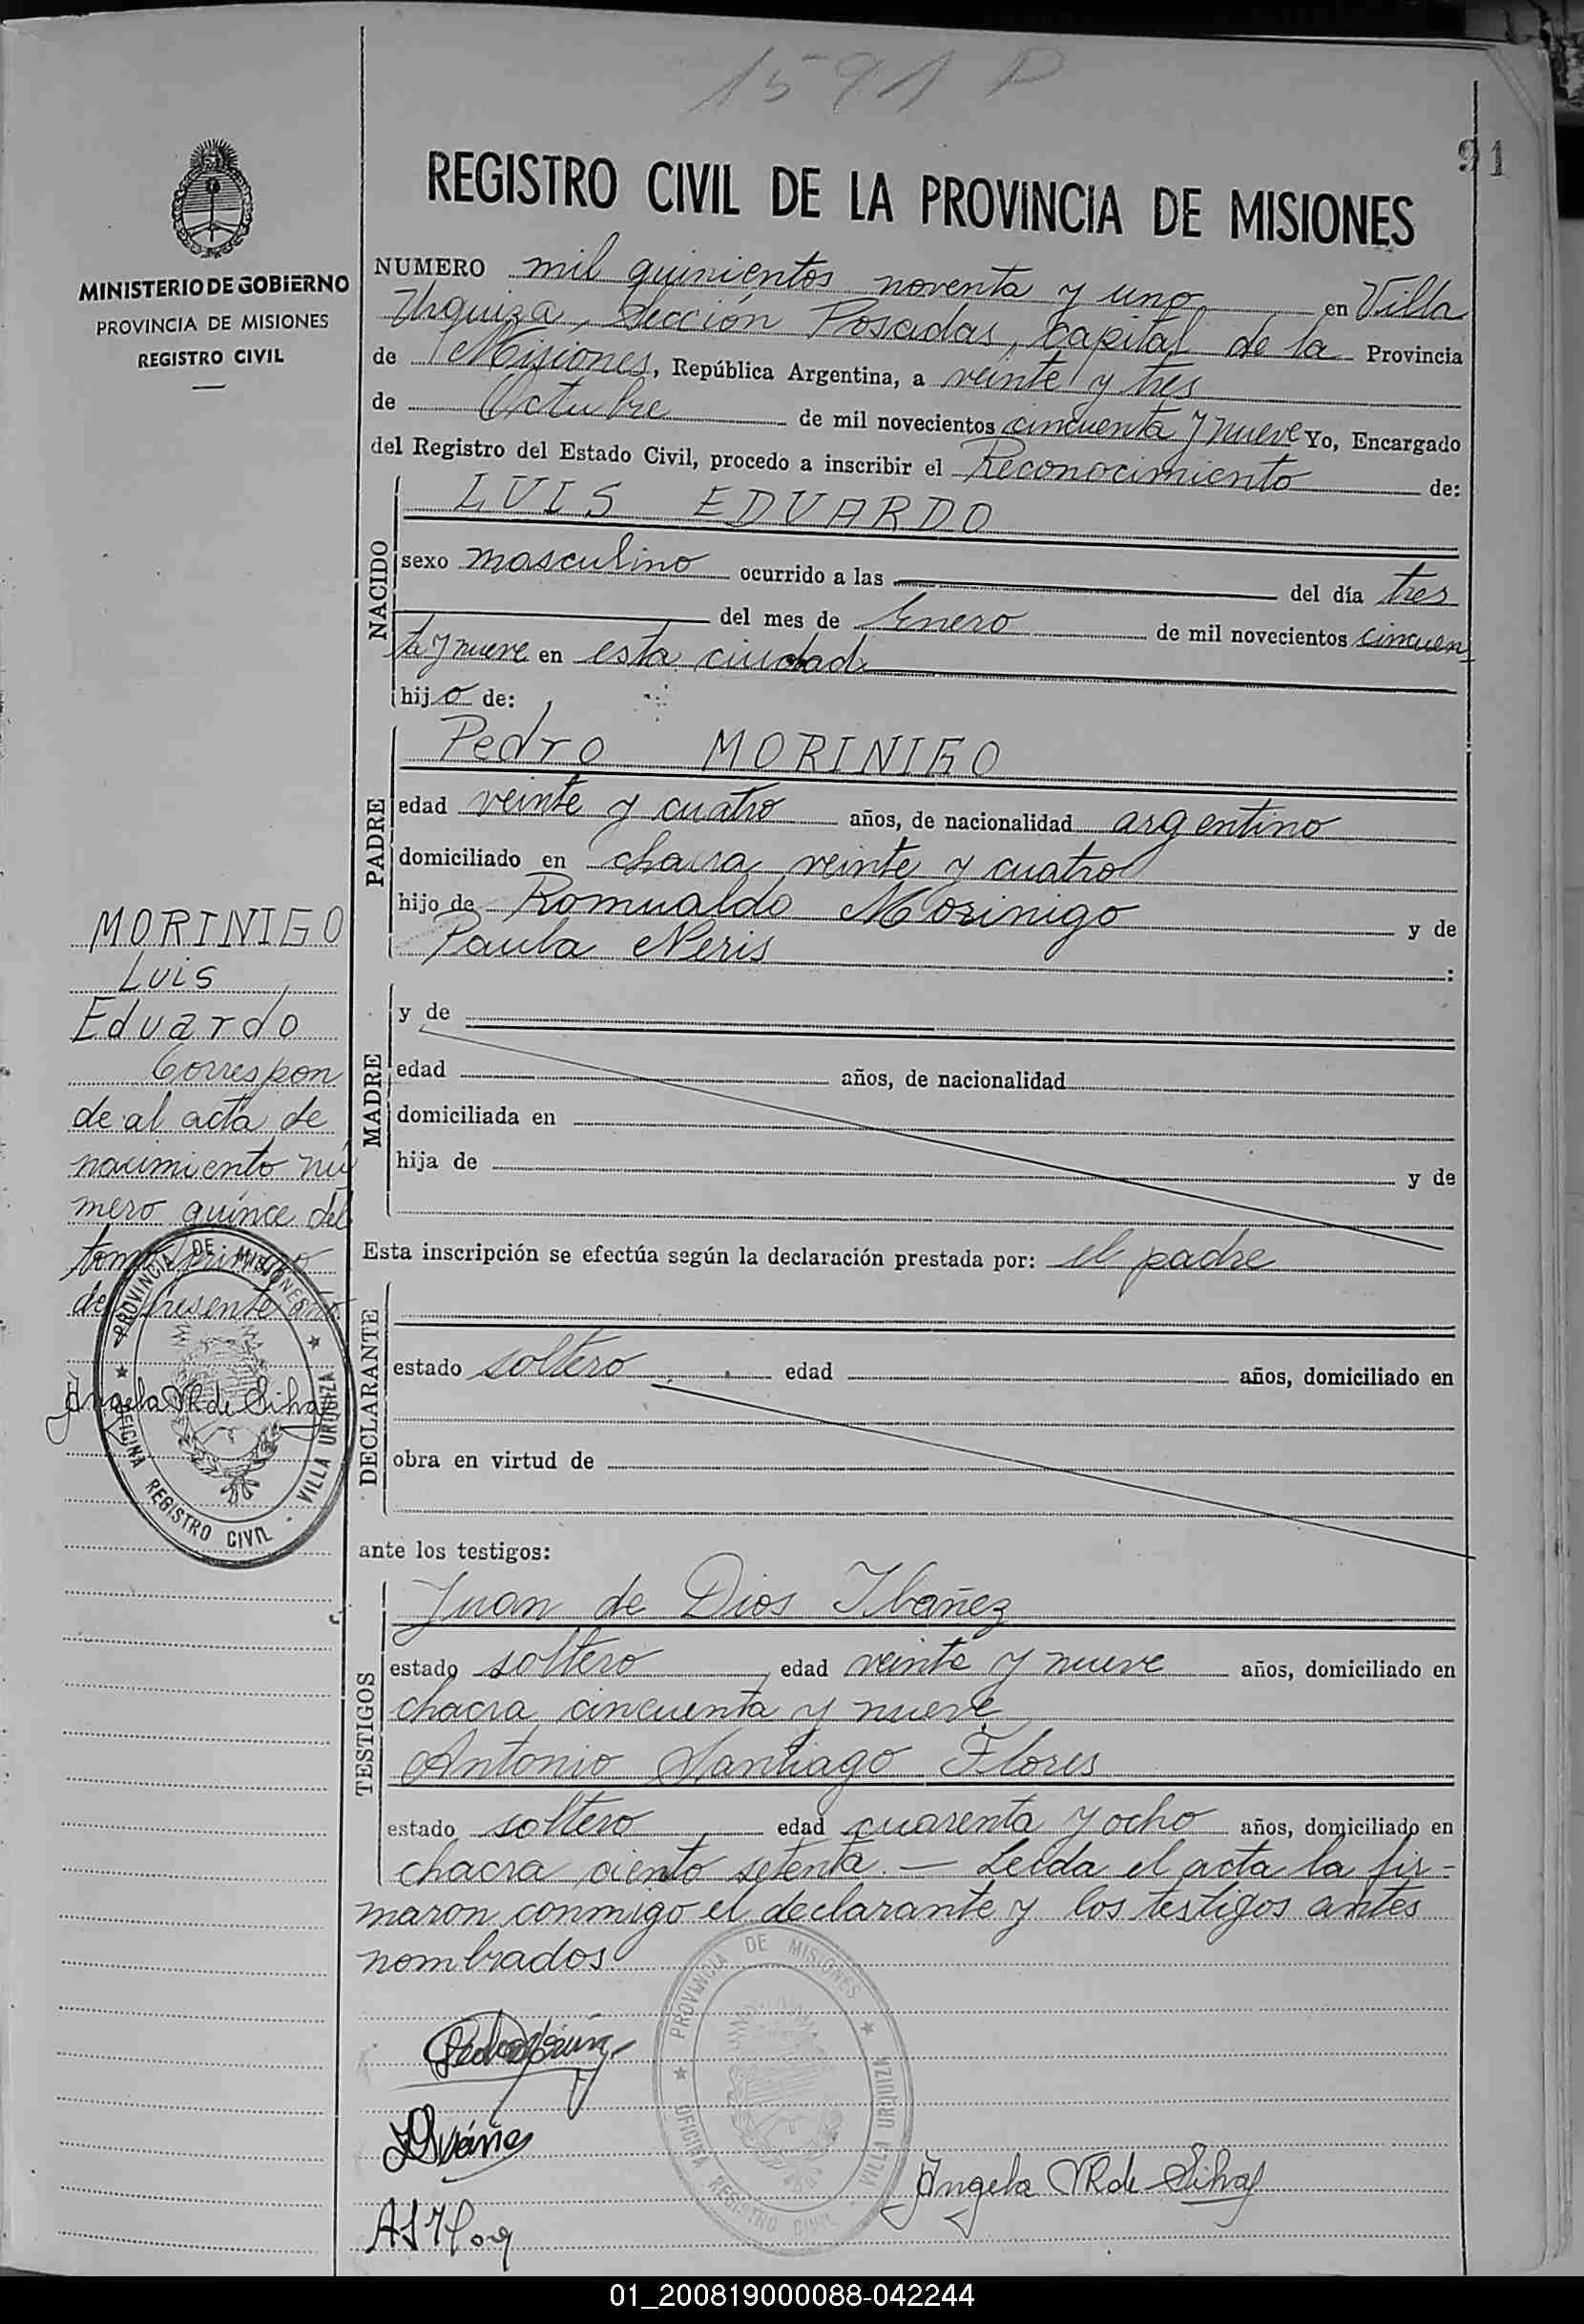 1591 P
91
REGISTRO CIVIL DE LA PROVINCIA DE MISIONES
MINISTERIO DE GOBIERNO
PROVINCIA DE MISIONES
REGISTRO CIVIL
NUMERO mil quinientos noventa y uno en Villa
Urquiza, Sección Posadas, Capital de la Provincia
de Misiones, República Argentina, a veinte y tres
de Octubre de mil novecientos cincuenta y nueve Yo, Encargado
del Registro del Estado Civil, procedo a inscribir el Reconocimiento de:
NACIDO
LUIS EDUARDO
sexo masculino ocurrido a las del día tres
del mes de Enero de mil novecientos cincuen
ta y nueve en esta ciudad
hijo de:
PADRE
Pedro MORINIGO
edad veinte y cuatro años, de nacionalidad argentino
domiciliado en chacra veinte y cuatro
hijo de Romualdo Morinigo y de
Paula Neris :
MADRE
y de
edad años, de nacionalidad
domiciliada en
hija de y de
Esta inscripción se efectúa según la declaración prestada por: el padre
DECLARANTE
estado soltero edad años, domiciliado en
obra en virtud de
ante los testigos:
TESTIGOS
Juan de Dios Ibañez
estado soltero, edad veinte y nueve años, domiciliado en
chacra cincuenta y nueve
Antonio Santiago Flores
estado soltero edad cuarenta y ocho años, domiciliado en
chacra ciento setenta. — Leída el acta la fir=
maron conmigo el declarante y los testigos antes
nombrados
MORINIGO
Luis
Eduardo
Correspon
de al acta de
nacimiento nú
mero quince del
tomo primero
del presente año.
Angela R de Silva
PROVINCIA DE MISIONES
OFICINA REGISTRO CIVIL - VILLA URQUIZA
PROVINCIA DE MISIONES
OFICINA REGISTRO CIVIL - VILLA URQUIZA
Angela R de Silva
01_200819000088-042244